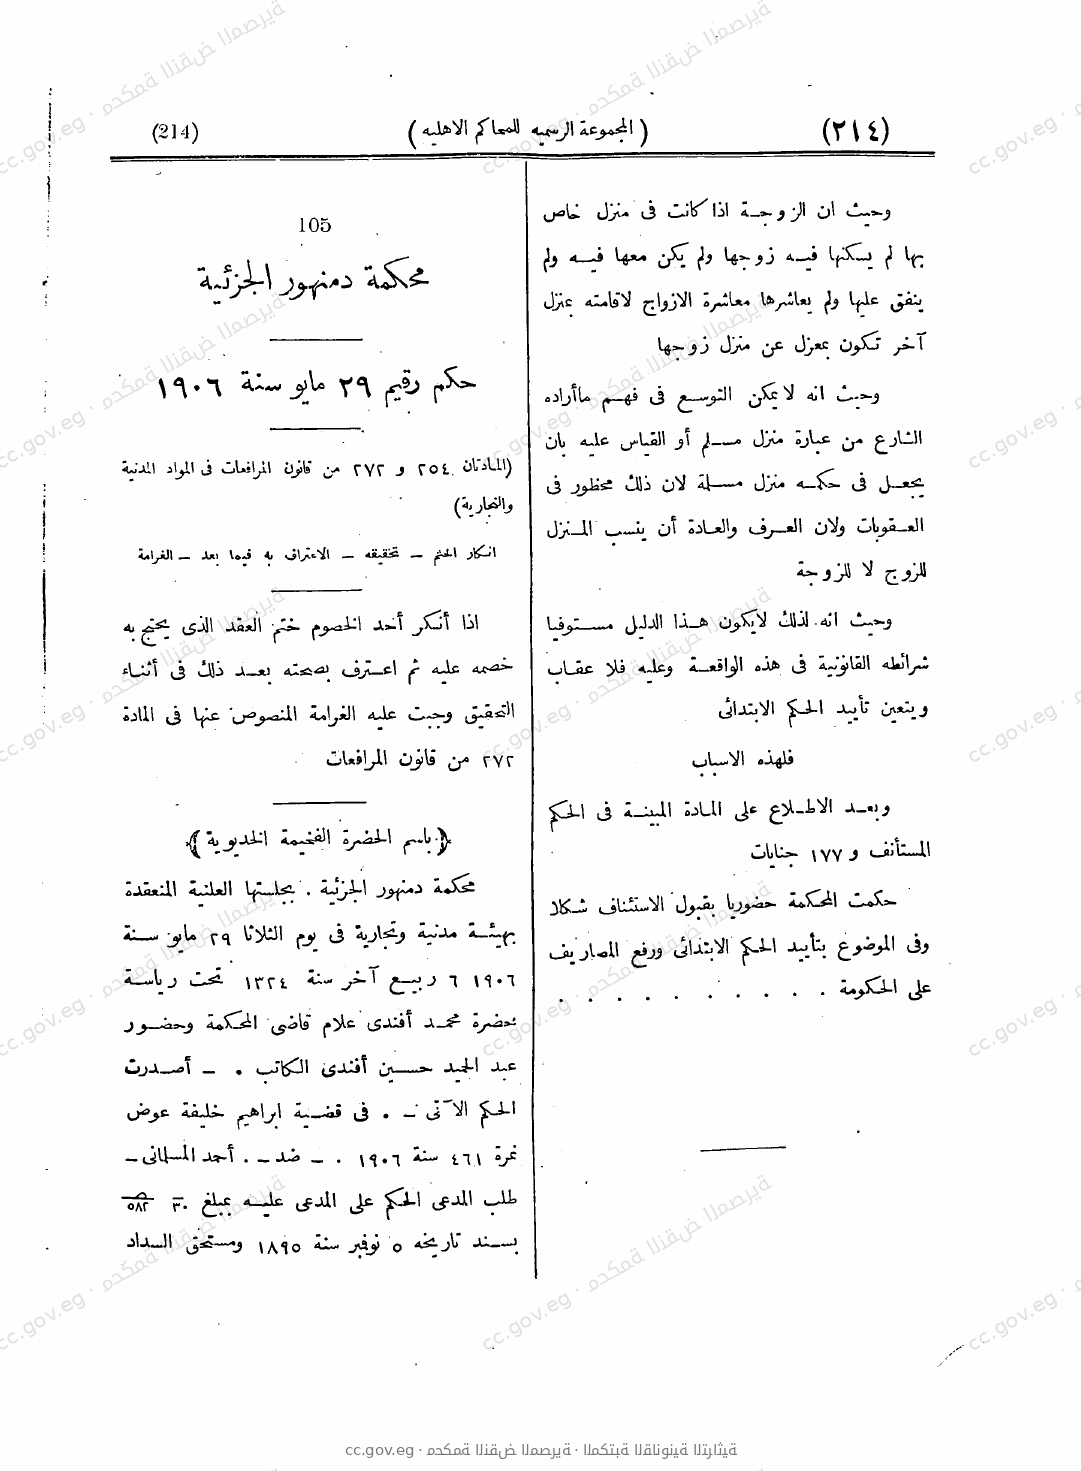 (٢١٤) (المجموعة الرسميه للمحاكم الاهليه) (214)
وحيث ان الزوجة اذا كانت فى منزل خاص
بها لم يسكنها فيه زوجها ولم يكن معها فيه ولم
ينفق عليها ولم يعاشرها معاشرة الازواج لاقامته بمنزل
آخر تكون بمعزل عن منزل زوجها
وحيث انه لا يمكن التوسع فى فهم ماأراده
الشارع من عبارة منزل مسلم أو القياس عليه بان
يجعل فى حكمه منزل مسلمة لان ذلك محظور فى
العقوبات ولان العرف والعادة أن ينسب المنزل
للزوج لا للزوجة
وحيث انه لذلك لايكون هذا الدليل مستوفيا
شرائطه القانونية فى هذه الواقعة وعليه فلا عقاب
ويتعين تأييد الحكم الابتدائى
فلهذه الاسباب
وبعد الاطلاع على المادة المبينة فى الحكم
المستأنف و ١٧٧ جنايات
حكمت المحكمة حضوريا بقبول الاستئناف شكلا
وفى الموضوع بتأييد الحكم الابتدائى ورفع المصاريف
على الحكومة . . . . . . . . . .
105
محكمة دمنهور الجزئية
حكم رقيم ٢٩ مايو سنة ١٩٠٦
(المادتان ٢٥٤ و ٢٧٢ من قانون المرافعات فى المواد المدنية
والتجارية)
انكار الختم – تحقيقه – الاعتراف به فيما بعد – الغرامة
اذا أنكر أحد الخصوم ختم العقد الذى يحتج به
خصمه عليه ثم اعترف بصحته بعد ذلك فى أثناء
التحقيق وجبت عليه الغرامة المنصوص عنها فى المادة
٢٧٢ من قانون المرافعات
﴿باسم الحضرة الفخيمة الخديوية﴾
محكمة دمنهور الجزئية . بجلستها العلنية المنعقدة
بهيئة مدنية وتجارية فى يوم الثلاثا ٢٩ مايو سنة
١٩٠٦ ٦ ربيع آخر سنة ١٣٢٤ تحت رياسة
حضرة محمد أفندى علام قاضى المحكمة وحضور
عبد الحميد حسين أفندى الكاتب . – أصدرت
الحكم الآتى – . فى قضية ابراهيم خليفة عوض
نمرة ٤٦١ سنة ١٩٠٦ . – ضد – . أحمد المسلمانى –
طلب المدعى الحكم على المدعى عليه بمبلغ ٣٠ ٥٨٢
بسند تاريخه ٥ نوفمبر سنة ١٨٩٥ ومستحق السداد
cc.gov.eg · محكمة النقض المصرية · المكتبة القانونية التراثية